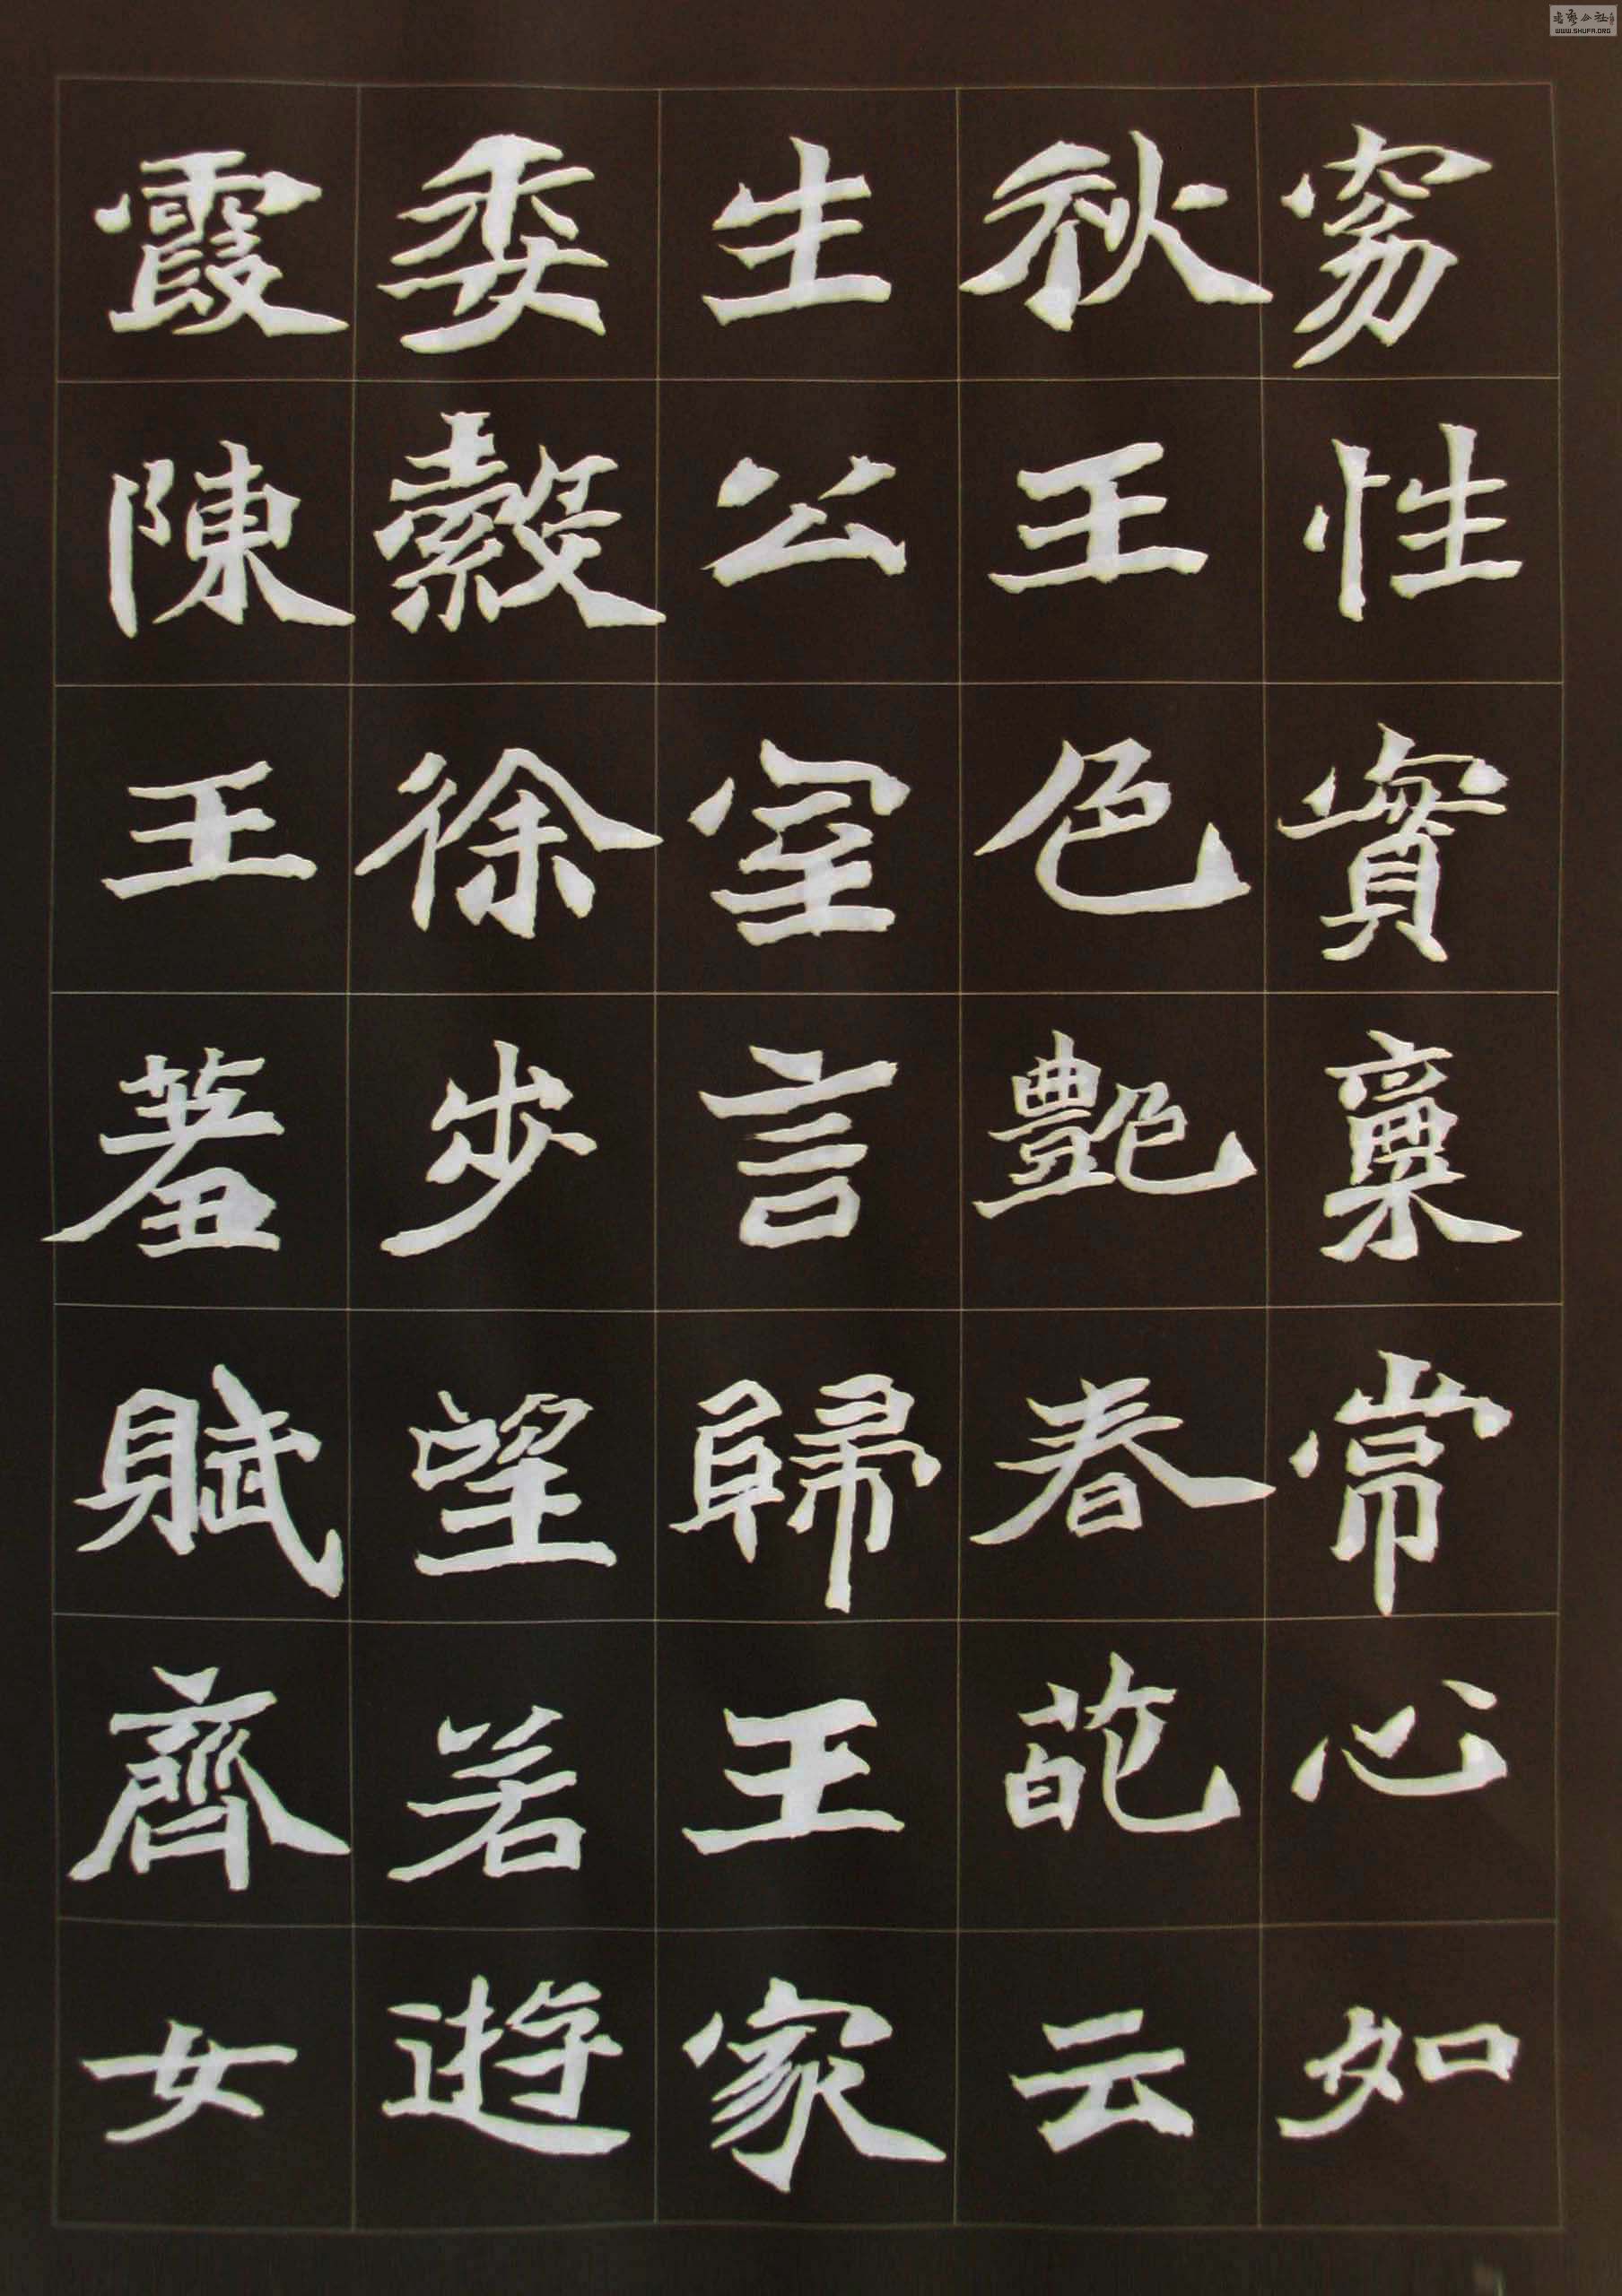 窈性實稟常心如
秋王色艷春葩云
生公室言歸王家
委縠徐步望若遊
霞陳王羞賦齊女
书艺公社
WWW.SHUFA.ORG